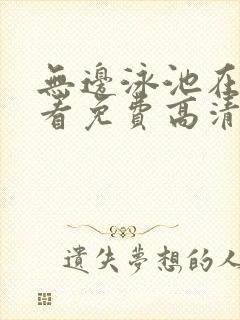 無邊泳池在
看免費高清
遺失夢想的人